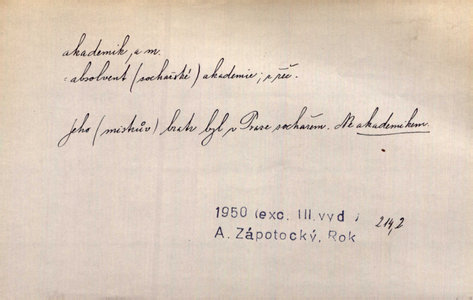 akademik, a m.
absolvent (sochařské) akademie; z řeč.
Jeho (mistrův) bratr byl v Praze sochařem. Ak akademikem.
1950 (exc. III.vyd.) 214,2
A. Zápotocký, Rok